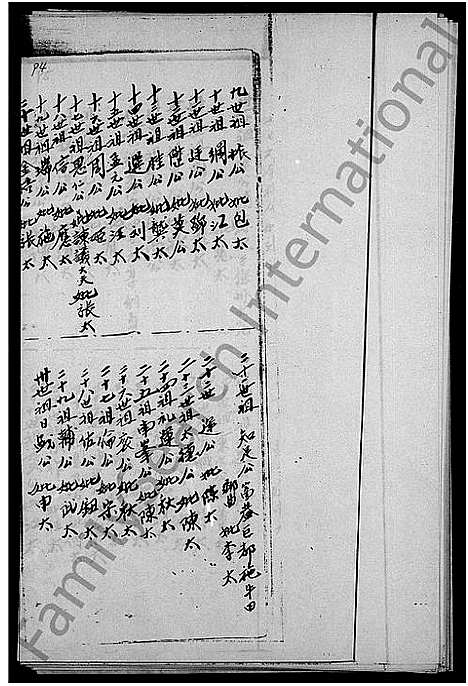 P4
九世祖 振公 妣包太
十世祖 綱公 妣江太
十一世祖 廷公 妣鄒太
十二世祖 陞公 妣莫公
十三世祖 桂公 妣龔太
十四世祖 選公 妣刘太
十五世祖 五元公 妣汪太
十六世祖 周公 妣 太
十七世祖 思仁公 諫議大夫 妣張太
十八世祖 信公 妣應太
十九世祖 瑞公 妣施太
二十世祖 公 妣張太
二十世祖 知足公 富 巨都 牛田
妣李太
二十一世 蓮公 妣陳太
二十三世祖 太 公 妣陳太
二十四祖 礼蓮公 妣秋太
二十五祖 南峯公 妣陳太
二十六世祖 公 妣秋太
二十七祖 倫公 妣宋太
二十八世祖 佐公 妣鈕太
二十九祖 輔公 妣武太
卅世祖 日 公 妣申太
FamilySearch International